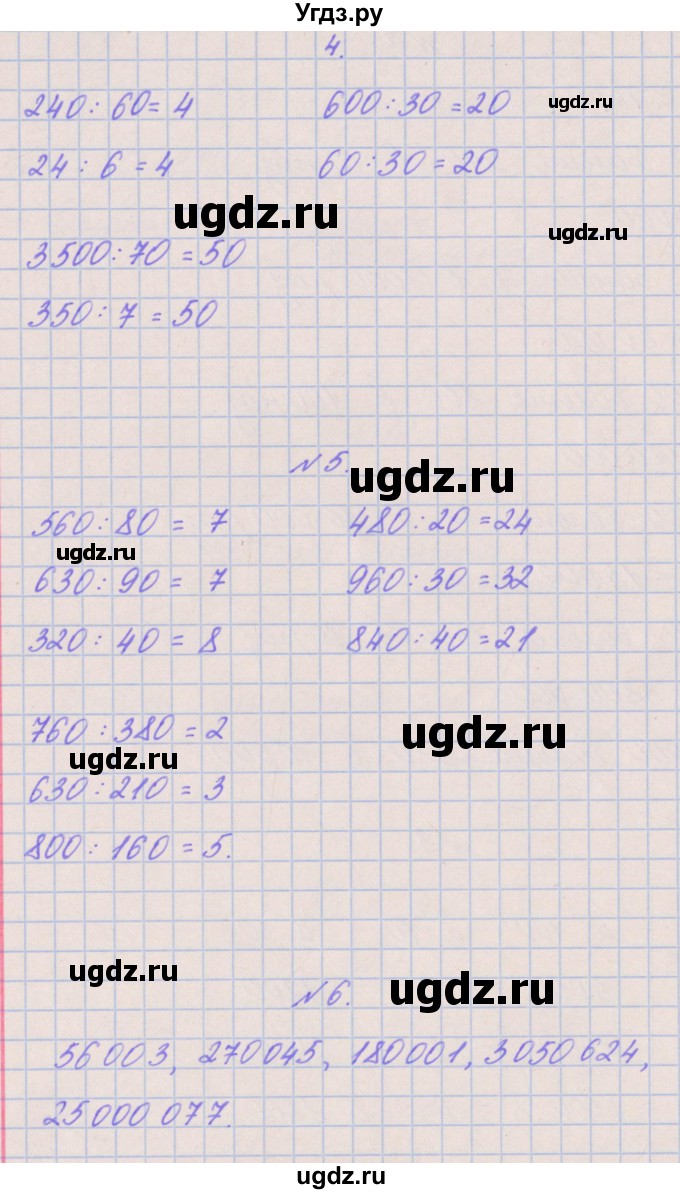 Угдз.ру
4.
240 : 60 = 4 600 : 30 = 20
ugdz.ru
24 : 6 = 4 60 : 30 = 20
ugdz.ru
ugdz.ru
3500 : 70 = 50
350 : 7 = 50
№5.
ugdz.ru
560 : 80 = 7 480 : 20 = 24
ugdz.ru
630 : 90 = 7 960 : 30 = 32
320 : 40 = 8 840 : 40 = 21
760 : 380 = 2
ugdz.ru
ugdz.ru
630 : 210 = 3
800 : 160 = 5.
ugdz.ru
№6.
ugdz.ru
56 003, 270 045, 180 001, 3 050 624,
25 000 077.
ugdz.ru